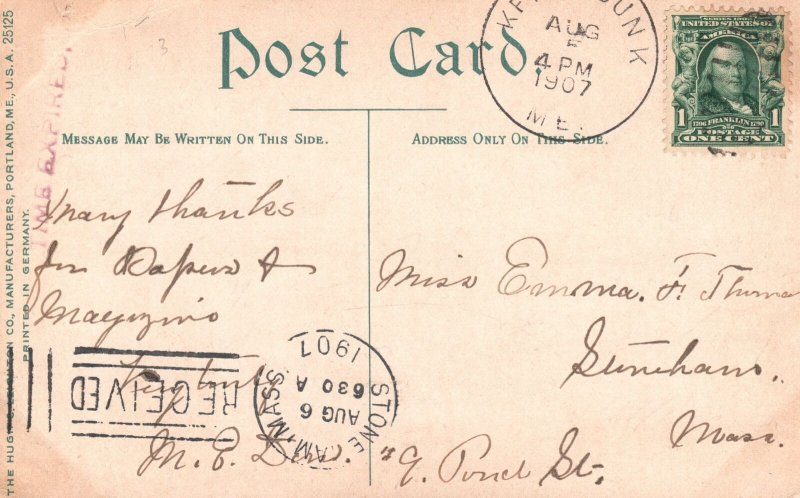 Post Card.
MESSAGE MAY BE WRITTEN ON THIS SIDE.
ADDRESS ONLY ON THIS SIDE.
AUG
5
4 PM
1907
ME.
SERIES 1902
UNITED STATES OF
AMERICA
1 1706 FRANKLIN 1790 1
POSTAGE
ONE CENT
TIME EXPIRED,
THE HUGH C. LEIGHTON CO., MANUFACTURERS, PORTLAND, ME., U.S.A. 25125
PRINTED IN GERMANY.
Many thanks
for Papers &
Magizins
M. E.
Miss Emma. F. Thomas
Stoneham.
Mass.
9. Pond St.
RECEIVED
STONEHAM, MASS.
AUG 6
630 A
1907